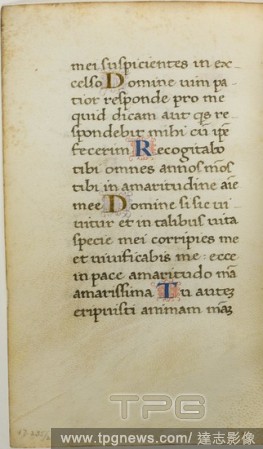 mei suspicientes in ex-
celso Domine uim pa-
tior responde pro me
quid dicam aut qs re-
spondebit mihi cũ ip̃e
fecerim Recogitabo
tibi omnes annos mõs
tibi in amaritudine aĩe
mee Domine si sic ui-
uitur et in talibus uita
specie mei corripies me
et uiuificabis me: ecce
in pace amaritudo mã
amarissima Tu autez
eripuisti animam maȝ
TPG
www.tpgnews.com/ 達志影像